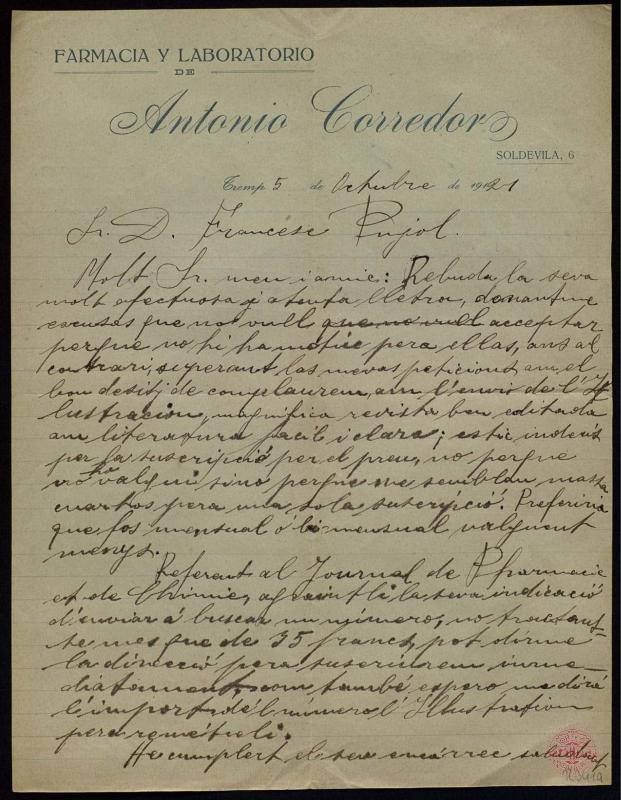 FARMACIA Y LABORATORIO
DE
Antonio Corredor
SOLDEVILA, 6
Tremp 5 de Octubre de 1921
Sr. D. Francesc Pujol.
Molt Sr. meu i amic: Rebuda la seva
molt afectuosa y atenta lletra, donantme
excusas que no vull que no vull acceptar
perque no hi ha motiu pera ellas, ans al
contrari, superant las mevas peticions am el
bon desitj de complaurem, am l'envio de l'Il-
lustracion, magnifica revista ben editada
am literatura facil i clara; estic indecis
per la suscripció per el preu, no perque
no ho valgui sino perque me semblan massa
cuartos pera una sola suscripció. Preferiria
que fos mensual ó bi-mensual valguent
menys.
Referent al Journal de Pharmacie
et de Chimie, agraintli la seva indicació
d'enviar á buscar un número, no tractant-
se mes que de 35 franct, pot dirme
la direcció pera suscriurem inme-
diatament, com també espero me dirá
l'import del número l'Illustration
pera remétreli.
He cumplert el seu encárrec saludant